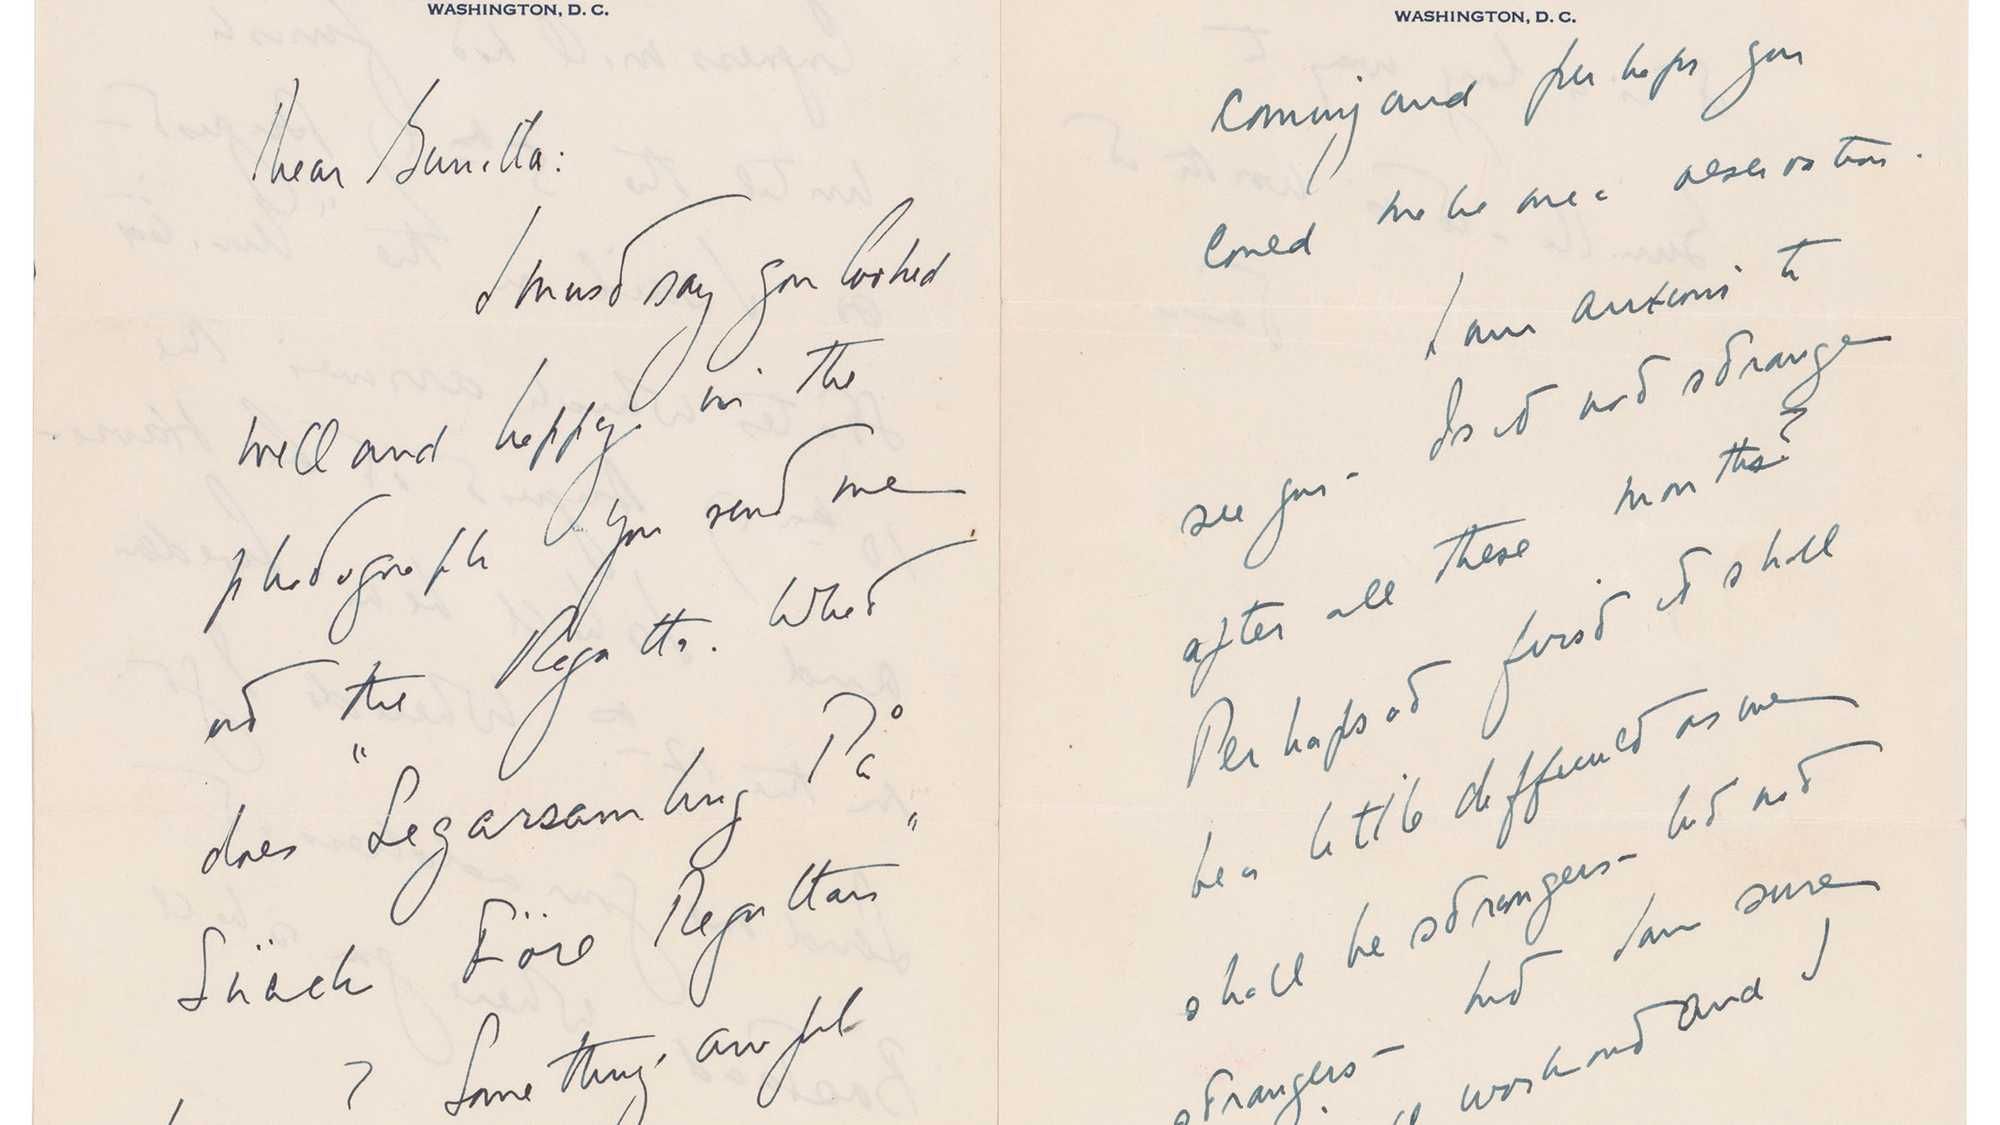 WASHINGTON, D. C.
Dear Gunilla:
I must say you looked
well and happy in the
photograph you send me
at the Regatta. What
does "Segarsamling På
Snäck Före Regattan"
? Something awful
WASHINGTON, D. C.
Coming and perhaps you
could make me a reservation.
I am anxious to
see you - Is it not strange
after all these months?
Perhaps at first it shall
be a little difficult as we
shall be strangers - but not
strangers - but I am sure
work out and I